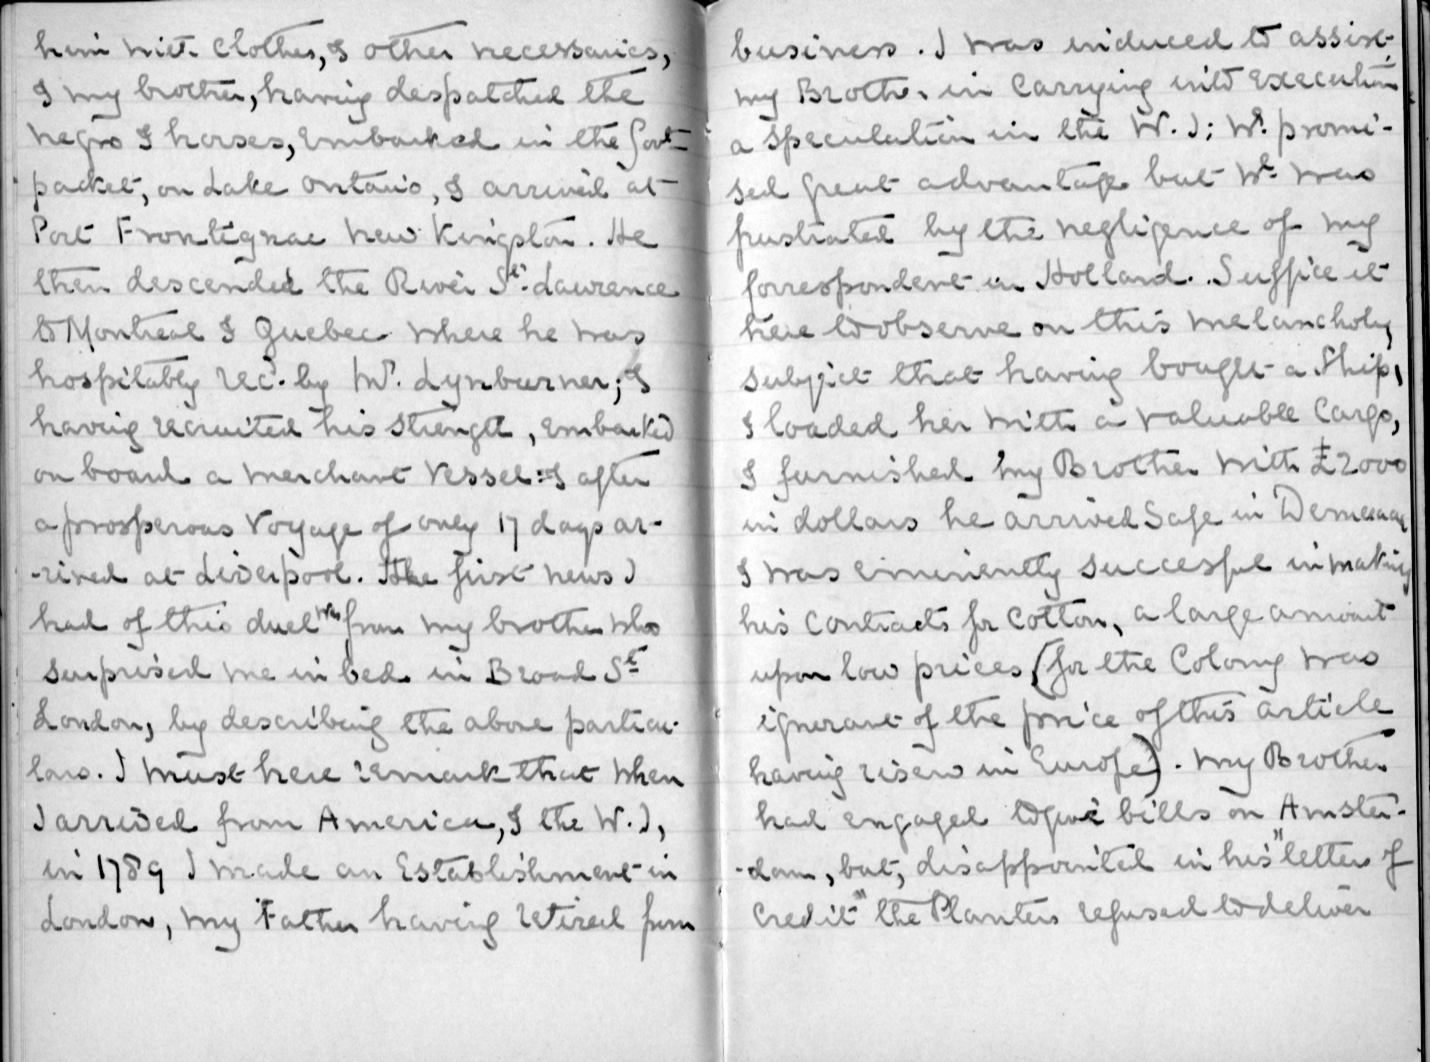 him with clothes, & other necessaries,
& my brother, having despatched the
negro & horses, embarked in the Govt
packet, on Lake Ontario, & arrived at
Port Frontignac now Kingston. He
then descended the River St. Lawrence
to Montreal & Quebec where he was
hospitably recd. by Mr. Lynburner; &
having recruited his strength, embarked
on board a merchant vessel: & after
a prosperous voyage of only 17 days ar-
-rived at Liverpool. The first news I
had of this duel was from my brother who
surprised me in bed in Broad St
London, by describing the above particu-
lars. I must here remark that when
I arrived from America, & the W.I,
in 1789 I made an Establishment in
London, my Father having retired from
business. I was induced to assist
my Brother in carrying into execution
a speculation in the W.I; wh. promi-
sed great advantage but wh. was
frustrated by the negligence of my
correspondent in Holland. Suffice it
here to observe on this melancholy
subject that having bought a Ship,
I loaded her with a valuable Cargo,
& furnished my Brother with £2000
in dollars he arrived safe in Demerary
& was eminently successful in making
his contracts for cotton, a large amount
upon low prices (for the Colony was
ignorant of the price of this article
having risen in Europe). My Brother
had engaged to give bills on Amster-
-dam, but, disappointed in his "letters of
credit" the Planters refused to deliver